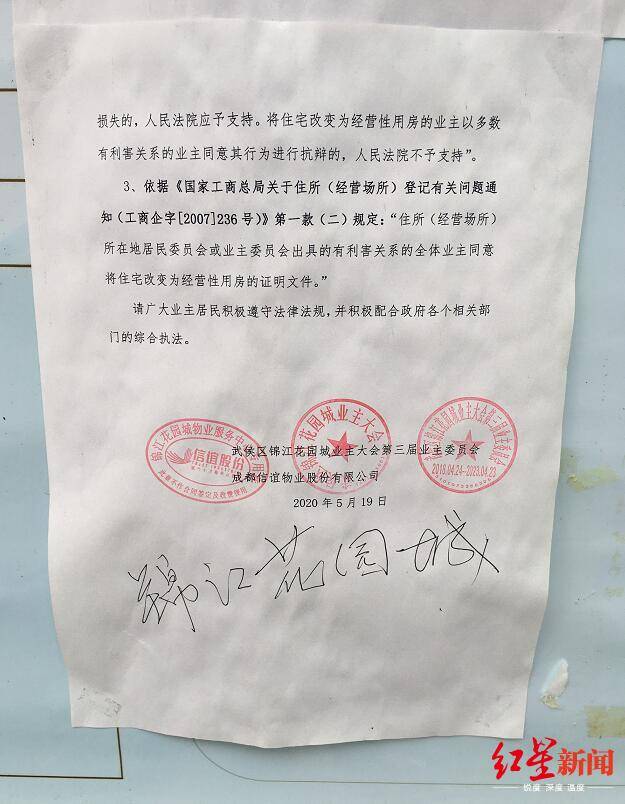 损失的，人民法院应予支持。将住宅改变为经营性用房的业主以多数
有利害关系的业主同意其行为进行抗辩的，人民法院不予支持”。
3、依据《国家工商总局关于住所（经营场所）登记有关问题通
知（工商企字[2007]236号）》第一款（二）规定：“住所（经营场所）
所在地居民委员会或业主委员会出具的有利害关系的全体业主同意
将住宅改变为经营性用房的证明文件。”
请广大业主居民积极遵守法律法规，并积极配合政府各个相关部
门的综合执法。
锦江花园城物业服务中心
信谊股份
此章不作合同签定及收费使用
锦江花园城业主大会
2018.04.24-2023.04.23
武侯区锦江花园城业主大会第三届业主委员会
成都信谊物业股份有限公司
2020年5月19日
锦江花园城
红星新闻
锐度 深度 温度